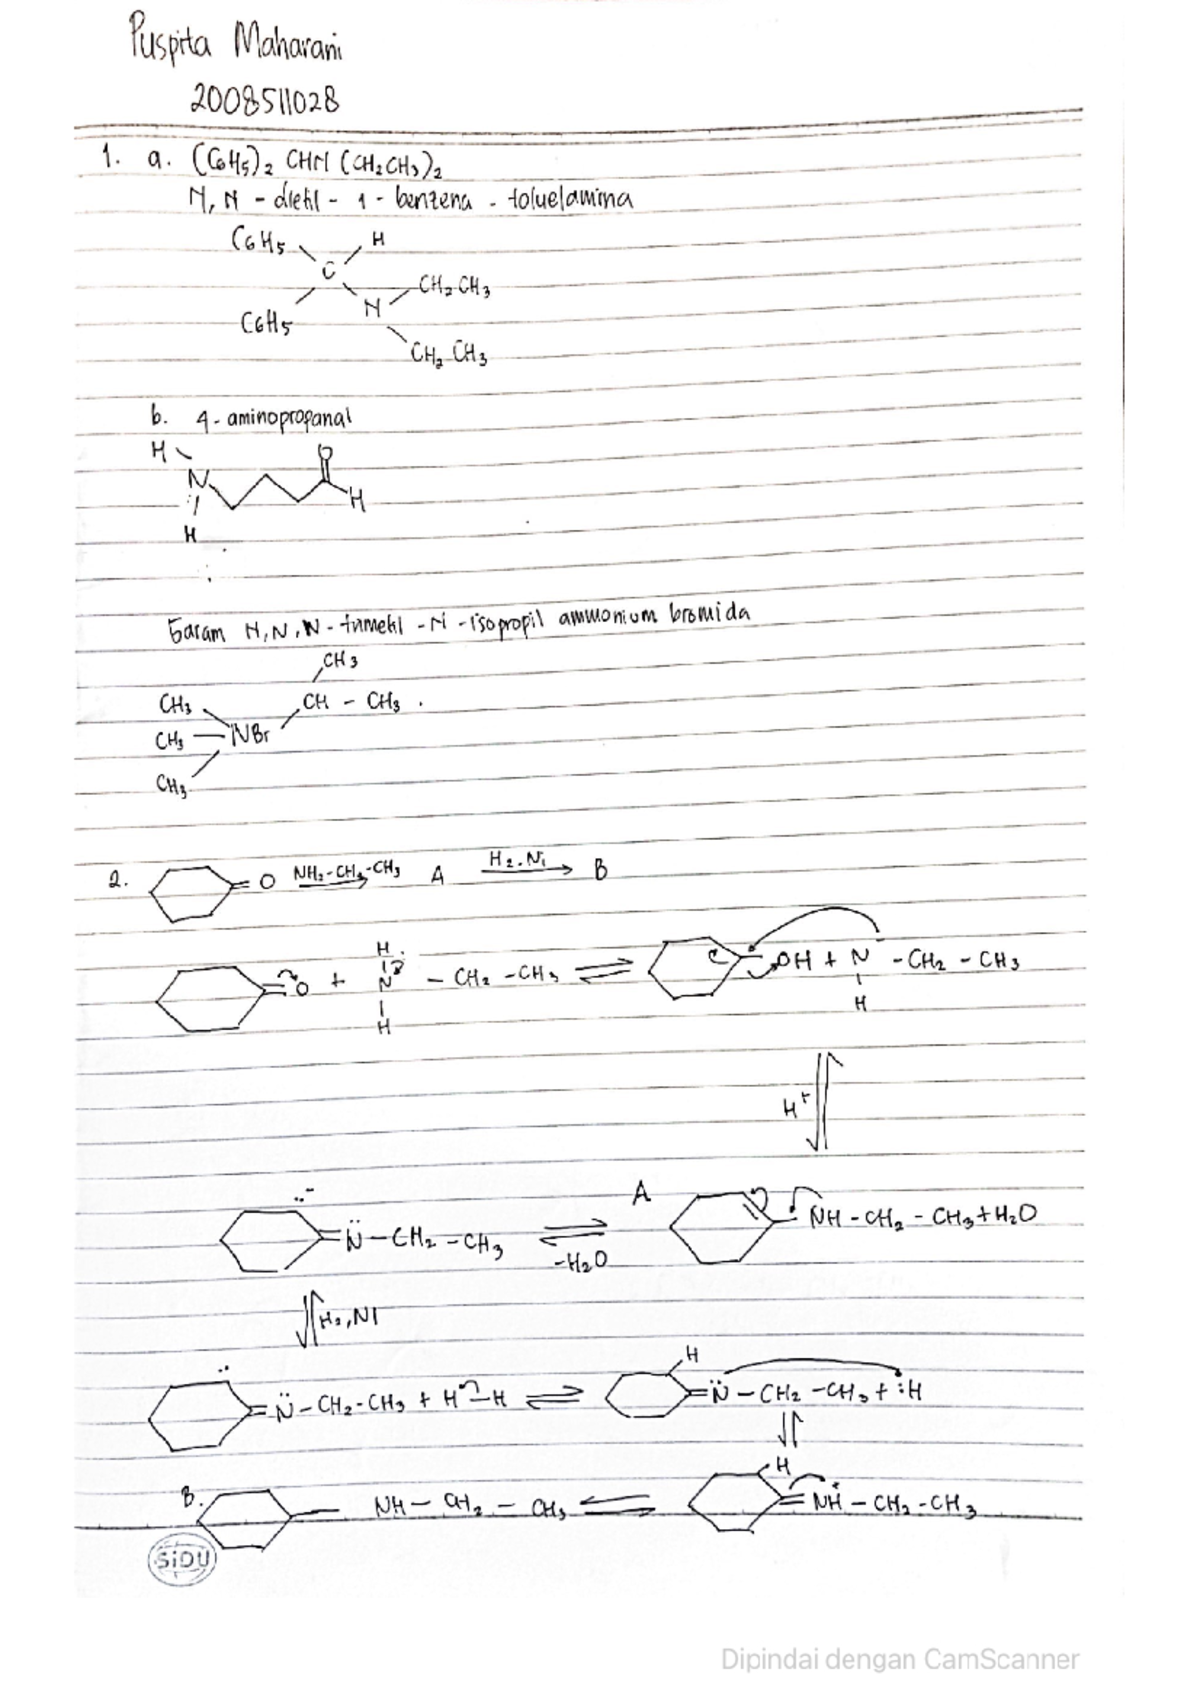 Puspita Maharani
2008511028
1. a. (C6H5)2 CHN (CH2CH3)2
N, N - dietil - 1 - benzena - toluelamina
C6H5 H
C
CH2 CH3
N
C6H5
CH2 CH3
b. 4-aminopropanal
H O
N
H
H
Garam N,N,N-trimetil -N -isopropil ammonium bromida
CH3
CH3 CH - CH3
CH3 NBr
CH3
2. O NH2-CH2-CH3 A H2.Ni B
H
O + N - CH2 -CH3 C OH + N -CH2 - CH3
H H
H+
A
N-CH2 -CH3 NH -CH2 - CH3+H2O
-H2O
H2,Ni
H
N-CH2-CH3 + H-H N - CH2 -CH3 + :H
H
B. NH - CH2 - CH3 NH - CH2 -CH3
SiDU
Dipindai dengan CamScanner